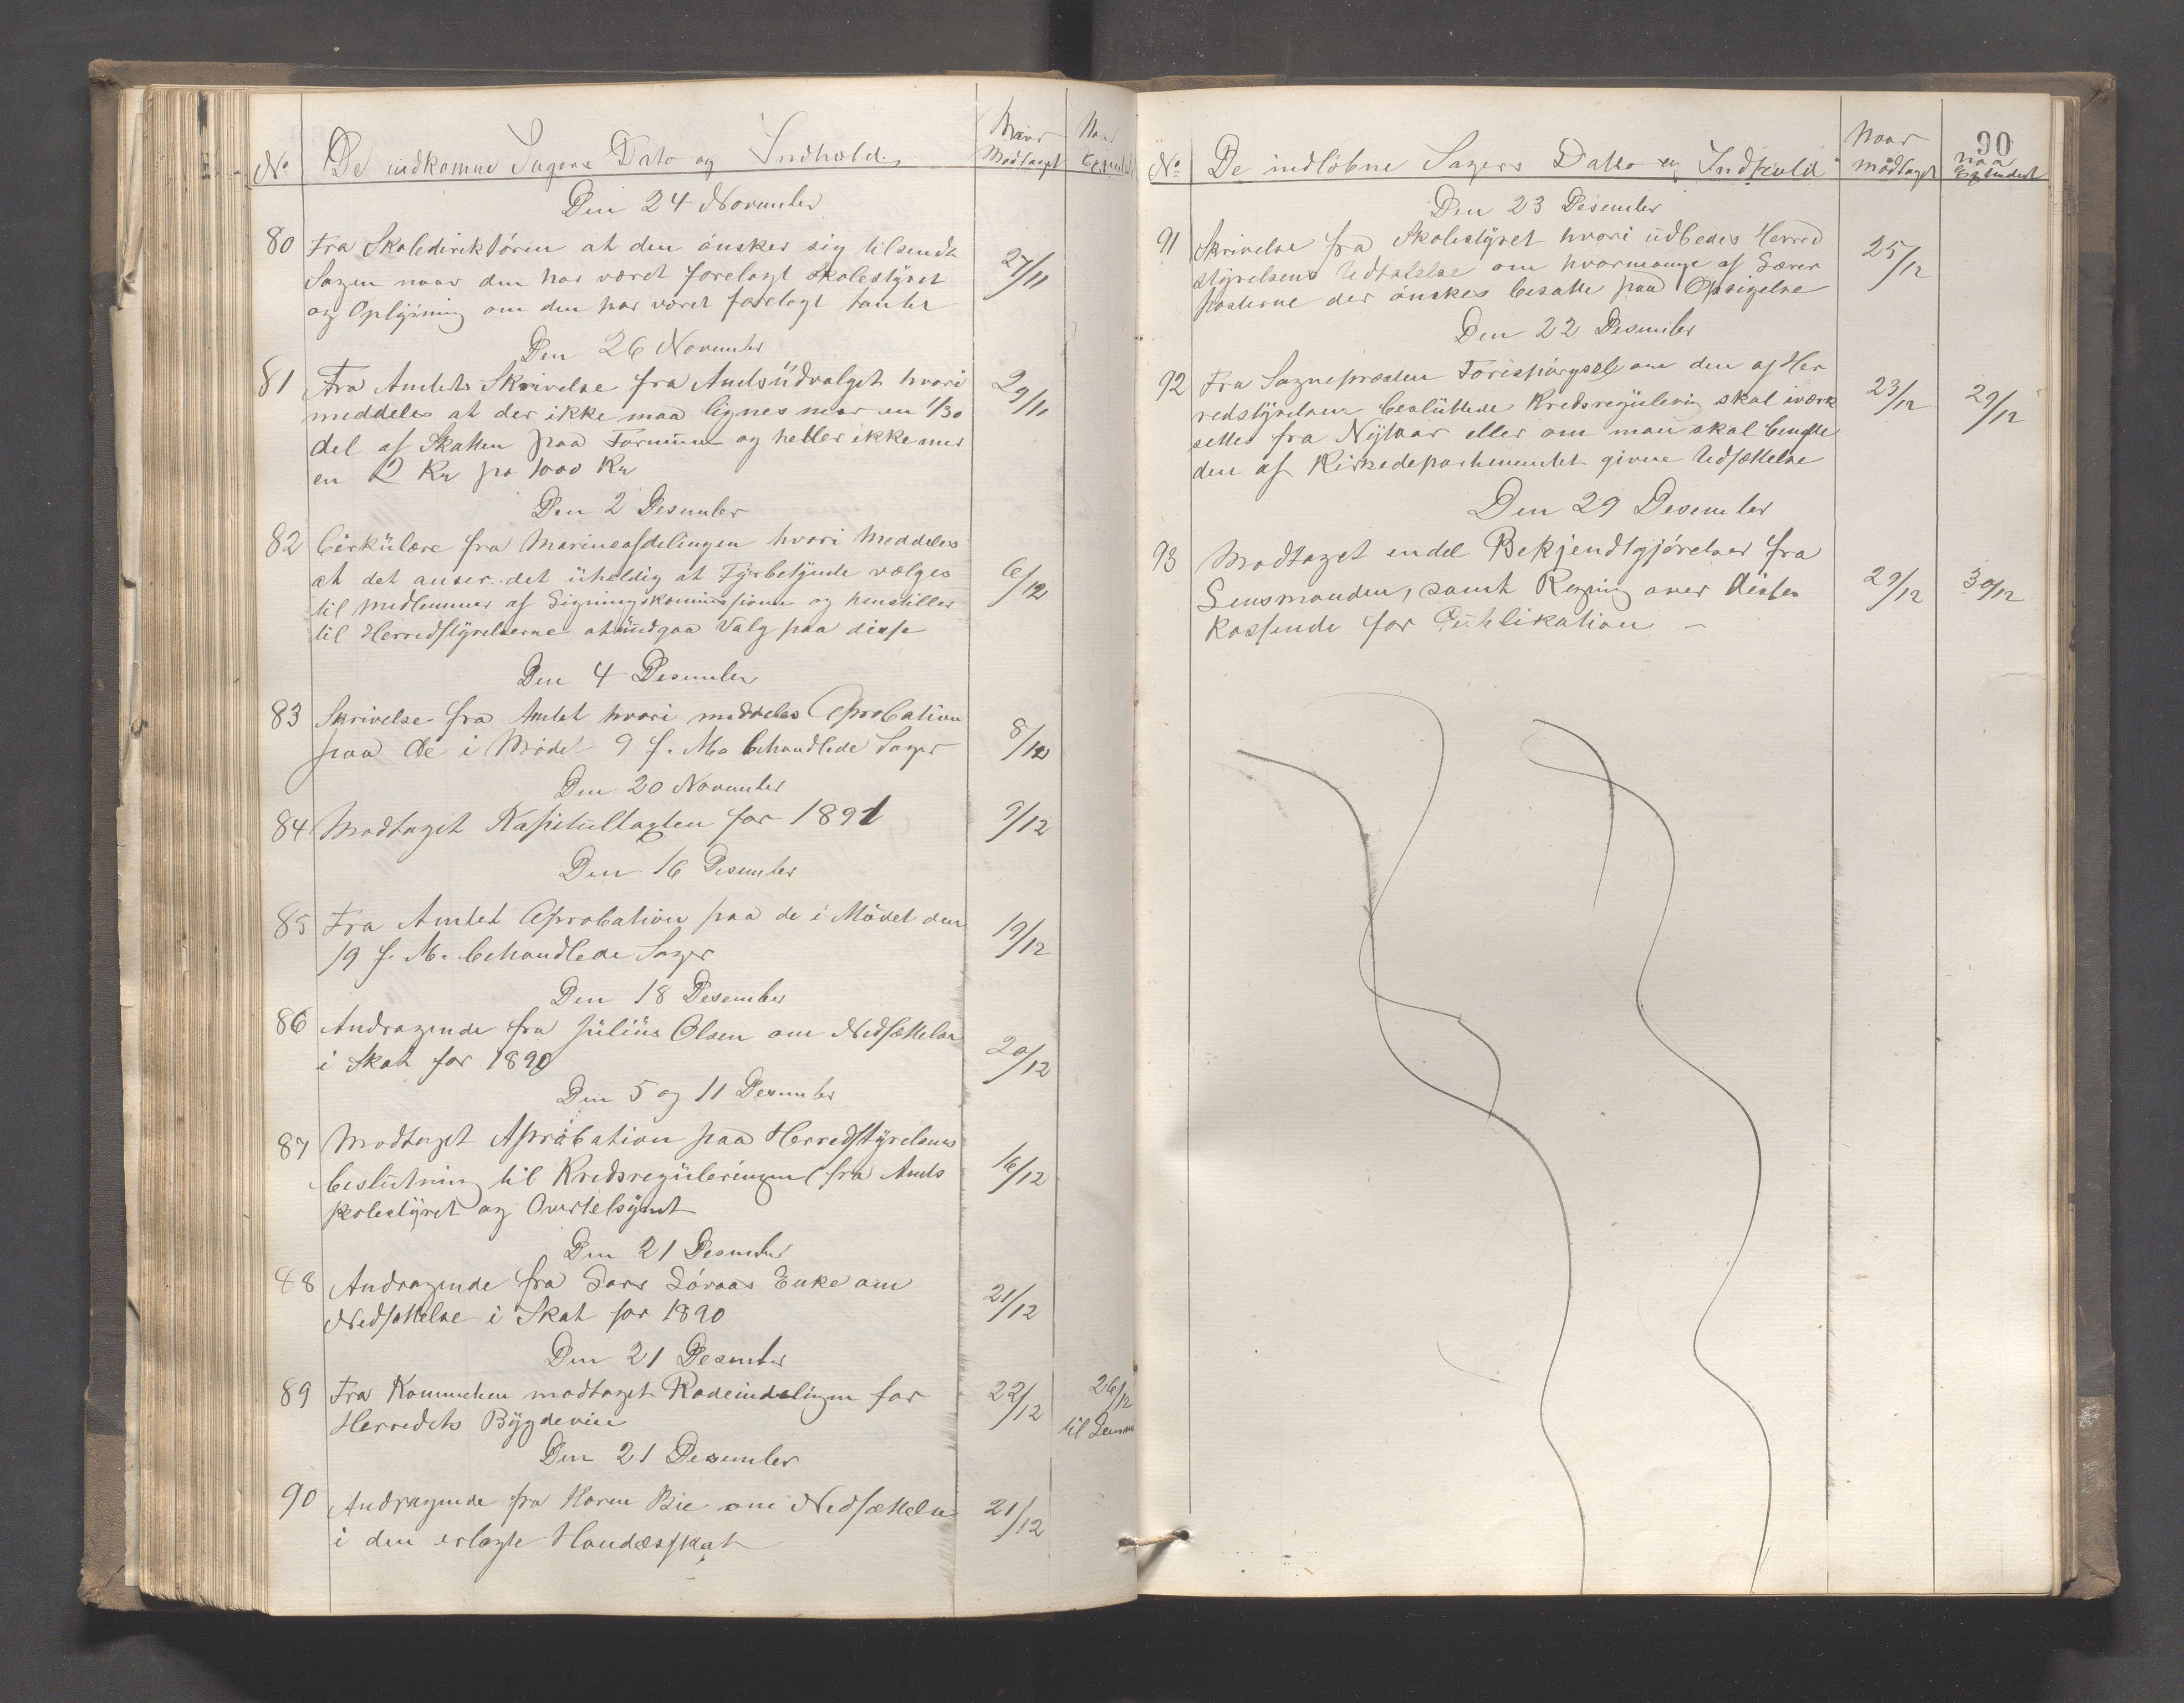 No De indkomne Sagers Dato og Indhold. Naar Modtaget Naar
Den 24 November
80 Fra Skoledirektören at den önsker sig tilsendt
Sagen naar den har været forelagt Skolestyret 27/11
og Oplysning om den har været forelagt
Den 26 November
81 Fra Amtets Skrivelse fra Amtsüdvalget hvori 29/11
meddeles at der ikke maa lignes mer en 1/30
del af Skatten paa Formüe og heller ikke mer
en 2 Kr pr 1000 Kr
Den 2 Desember
82 Cirkülære fra Marineafdelingen hvori Meddeles
at det anser det üheldig at Fyrbetjente vælges 6/12
til Medlemmer af Ligningskommissionen og henstiller
til Herredstyrelserne at ündgaa Valg paa disse
Den 4 Desember
83 Skrivelse fra Amtet hvori meddeles Aprobation
paa de i Mödet 9 f. M. behandlede Sager 8/12
Den 20 November
84 Modtaget Kapitültaxten for 1891 9/12
Den 16 Desember
85 Fra Amtet Aprobation paa de i Mödet den
19 f. M. behandlede Sager 19/12
Den 18 Desember
86 Andragende fra Jüliüs Olsen om Nedsættelse
i Skat for 1890 20/12
Den 5 og 11 Desember
87 Modtaget Aprobation paa Herredstyrelsens
beslütning til Kredsregüleringen (fra Amts 16/12
skolestyret og
Den 21 Desember
88 Andragende fra Lars Löraas Enke om
Nedsættelse i Skat for 1890 21/12
Den 21 Desember
89 Fra modtaget Rodeindelingen for 22/12 26/12
Herredets Bygdeveie til
Den 21 Desember
90 Andragende fra Karen Bie om Nedsættelse 21/12
i den erlagte Hundesskat
90
No De indlöbne Sagers Datto og Indhold Naar modtaget naar Expederet
Den 23 Desember
91 Skrivelse fra Skolestyret hvori üdbedes Herred
styrelsens Udtalelse om hvormange af Lærer 25/12
posterne der önskes besatte paa Opsigelse
Den 22 Desember
92 Fra Sognepresten Forespörgsel om den af Her
redstyrelsen beslüttede Kredsregülering skal iværk 23/12 29/12
settes fra Nytaar eller om man skal benytte
den af Kirkedepartementet givne Udsættelse
Den 29 Desember
93 Modtaget endel Bekjendtgjörelser fra
Lensmanden, samt Regning over 29/12 30/12
for Püblikation –